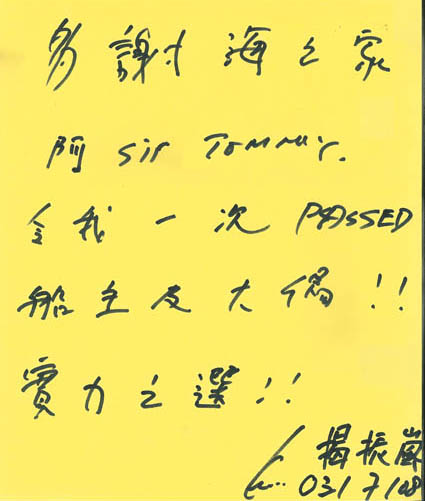 多謝海之家
阿 Sir Tommy.
令我一次 PASSED
船主及大偈!!
實力之選!!
振嵐
03/7/08